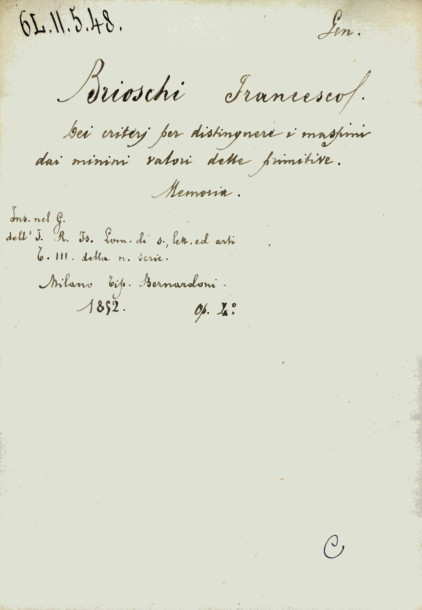 6L.II.5.48.
Gen.
Brioschi Francesco.
Dei criterj per distinguere i massimi
dai minimi valori delle primitive.
Memoria.
Ins. nel G.
dell' I. R. Is. Lom. di s., lett. ed arti
T. III. della n. serie.
Milano Tip. Bernardoni.
1852. op. 4°
C